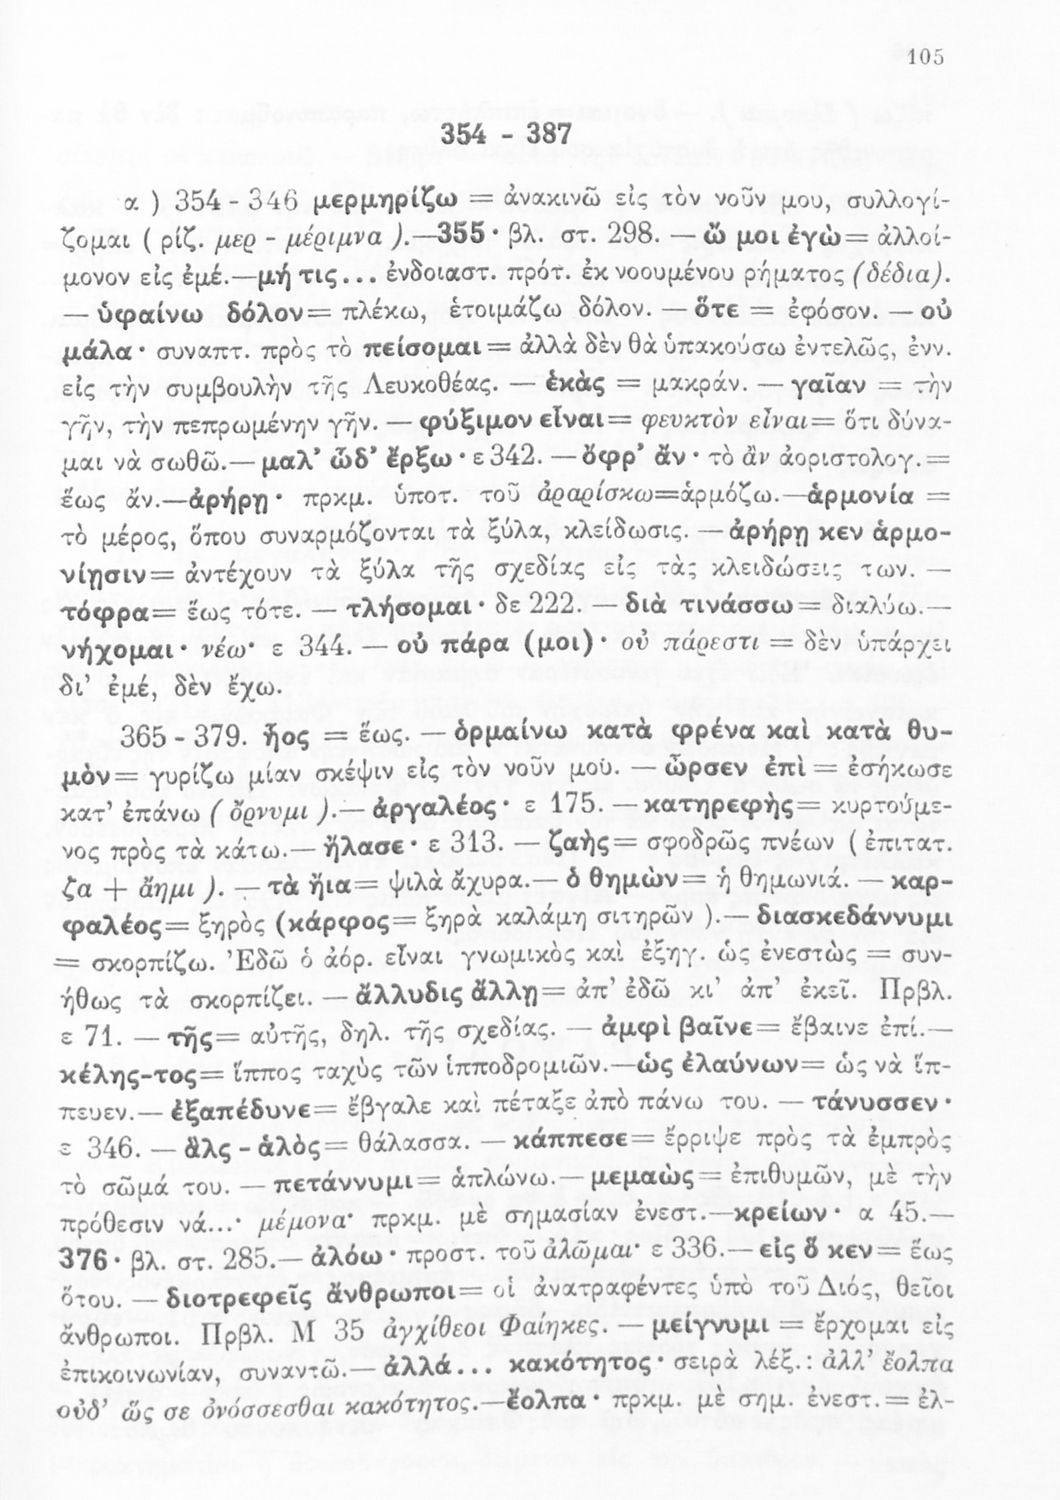 105
354 - 387
α ) 354 - 346 μερμηρίζω = ἀνακινῶ εἰς τὸν νοῦν μου, συλλογί-
ζομαι ( ρίζ. μερ - μέριμνα ).—355 · βλ. στ. 298. — ὤ μοι ἐγὼ= ἀλλοί-
μονον εἰς ἐμέ.—μή τις... ἐνδοιαστ. πρότ. ἐκ νοουμένου ρήματος (δέδια).
— ὑφαίνω δόλον= πλέκω, ἑτοιμάζω δόλον. — ὅτε = ἐφόσον. — οὐ
μάλα · συναπτ. πρὸς τὸ πείσομαι = ἀλλὰ δὲν θὰ ὑπακούσω ἐντελῶς, ἐνν.
εἰς τὴν συμβουλὴν τῆς Λευκοθέας. — ἑκὰς = μακράν. — γαῖαν = τὴν
γῆν, τὴν πεπρωμένην γῆν. — φύξιμον εἶναι= φευκτὸν εἶναι= ὅτι δύνα-
μαι νὰ σωθῶ.— μαλ’ ὧδ’ ἔρξω · ε 342. — ὄφρ’ ἄν · τὸ ἂν ἀοριστολογ. =
ἕως ἄν.—ἀρήρῃ · πρκμ. ὑποτ. τοῦ ἀραρίσκω=ἁρμόζω.—ἁρμονία =
τὸ μέρος, ὅπου συναρμόζονται τὰ ξύλα, κλείδωσις. — ἀρήρῃ κεν ἁρμο-
νίῃσιν= ἀντέχουν τὰ ξύλα τῆς σχεδίας εἰς τὰς κλειδώσεις των. —
τόφρα= ἕως τότε. — τλήσομαι · δε 222. — διὰ τινάσσω= διαλύω.—
νήχομαι · νέω· ε 344. — οὐ πάρα (μοι) · οὐ πάρεστι = δὲν ὑπάρχει
δι’ ἐμέ, δὲν ἔχω.
365 - 379. ἧος = ἕως. — ὁρμαίνω κατὰ φρένα καὶ κατὰ θυ-
μὸν= γυρίζω μίαν σκέψιν εἰς τὸν νοῦν μου. — ὦρσεν ἐπὶ = ἐσήκωσε
κατ’ ἐπάνω ( ὄρνυμι ).— ἀργαλέος · ε 175. — κατηρεφὴς= κυρτούμε-
νος πρὸς τὰ κάτω.— ἤλασε · ε 313. — ζαὴς= σφοδρῶς πνέων ( ἐπιτατ.
ζα + ἄημι ). — τὰ ἤια= ψιλὰ ἄχυρα.— ὁ θημὼν= ἡ θημωνιά. — καρ-
φαλέος= ξηρὸς (κάρφος= ξηρὰ καλάμη σιτηρῶν ).— διασκεδάννυμι
= σκορπίζω. Ἐδῶ ὁ ἀόρ. εἶναι γνωμικὸς καὶ ἐξηγ. ὡς ἐνεστὼς = συν-
ήθως τὰ σκορπίζει. — ἄλλυδις ἄλλῃ= ἀπ’ ἐδῶ κι’ ἀπ’ ἐκεῖ. Πρβλ.
ε 71. — τῆς= αὐτῆς, δηλ. τῆς σχεδίας. — ἀμφὶ βαῖνε= ἔβαινε ἐπί.—
κέλης-τος= ἵππος ταχὺς τῶν ἱπποδρομιῶν.—ὡς ἐλαύνων= ὡς νὰ ἵπ-
πευεν.— ἐξαπέδυνε= ἔβγαλε καὶ πέταξε ἀπὸ πάνω του. — τάνυσσεν ·
ε 346. — ἅλς - ἁλὸς= θάλασσα. — κάππεσε= ἔρριψε πρὸς τὰ ἐμπρὸς
τὸ σῶμά του. — πετάννυμι= ἁπλώνω.— μεμαὼς= ἐπιθυμῶν, μὲ τὴν
πρόθεσιν νά...· μέμονα· πρκμ. μὲ σημασίαν ἐνεστ.—κρείων · α 45.—
376 · βλ. στ. 285.— ἀλόω · προστ. τοῦ ἀλῶμαι· ε 336.— εἰς ὅ κεν= ἕως
ὅτου. — διοτρεφεῖς ἄνθρωποι= οἱ ἀνατραφέντες ὑπὸ τοῦ Διός, θεῖοι
ἄνθρωποι. Πρβλ. Μ 35 ἀγχίθεοι Φαίηκες. — μείγνυμι = ἔρχομαι εἰς
ἐπικοινωνίαν, συναντῶ.— ἀλλά... κακότητος · σειρὰ λέξ. : ἀλλ’ ἔολπα
οὐδ’ ὥς σε ὀνόσσεσθαι κακότητος.—ἔολπα · πρκμ. μὲ σημ. ἐνεστ. = ἐλ-